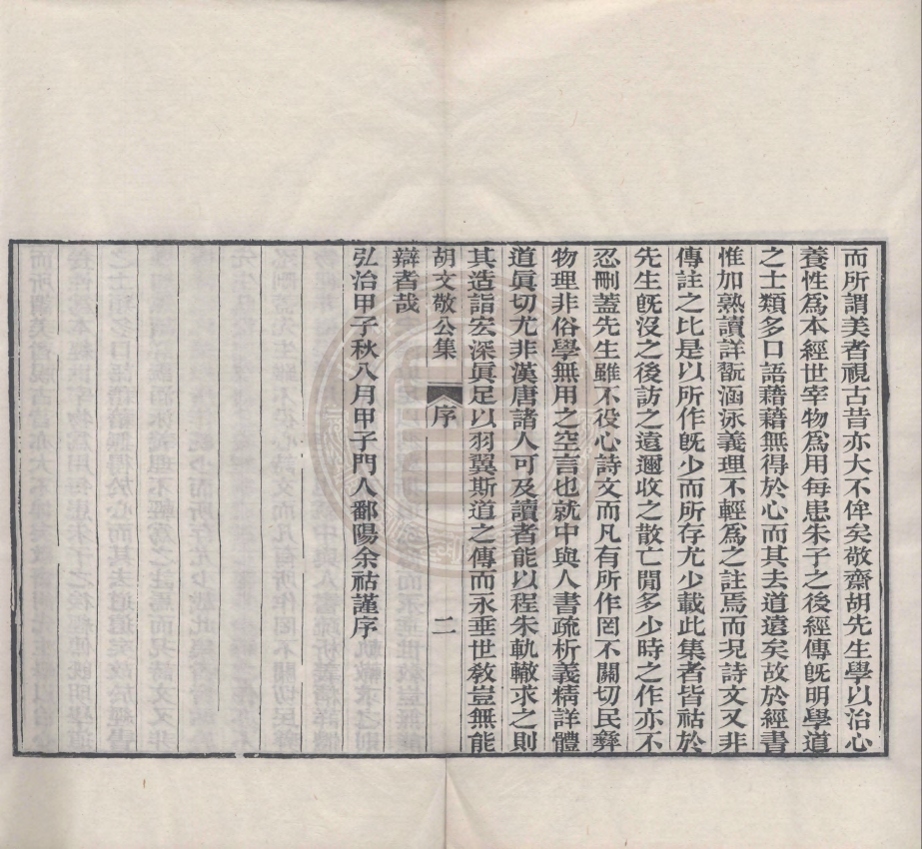 而所謂美者視古昔亦大不侔矣敬齋胡先生學以治心
養性爲本經世宰物爲用每患朱子之後經傳旣明學道
之士類多口語藉藉無得於心而其去道遠矣故於經書
惟加熟讀詳翫涵泳義理不輕爲之註焉而現詩文又非
傳註之比是以所作旣少而所存尤少載此集者皆祜於
先生旣沒之後訪之遠邇收之散亡閒多少時之作亦不
忍刪蓋先生雖不役心詩文而凡有所作罔不關切民彝
物理非俗學無用之空言也就中與人書疏析義精詳體
道眞切尤非漢唐諸人可及讀者能以程朱軌轍求之則
其造詣宏深眞足以羽翼斯道之傳而永垂世敎豈無能
胡文敬公集 序 二
辯者哉
弘治甲子秋八月甲子門人鄱陽余祜謹序